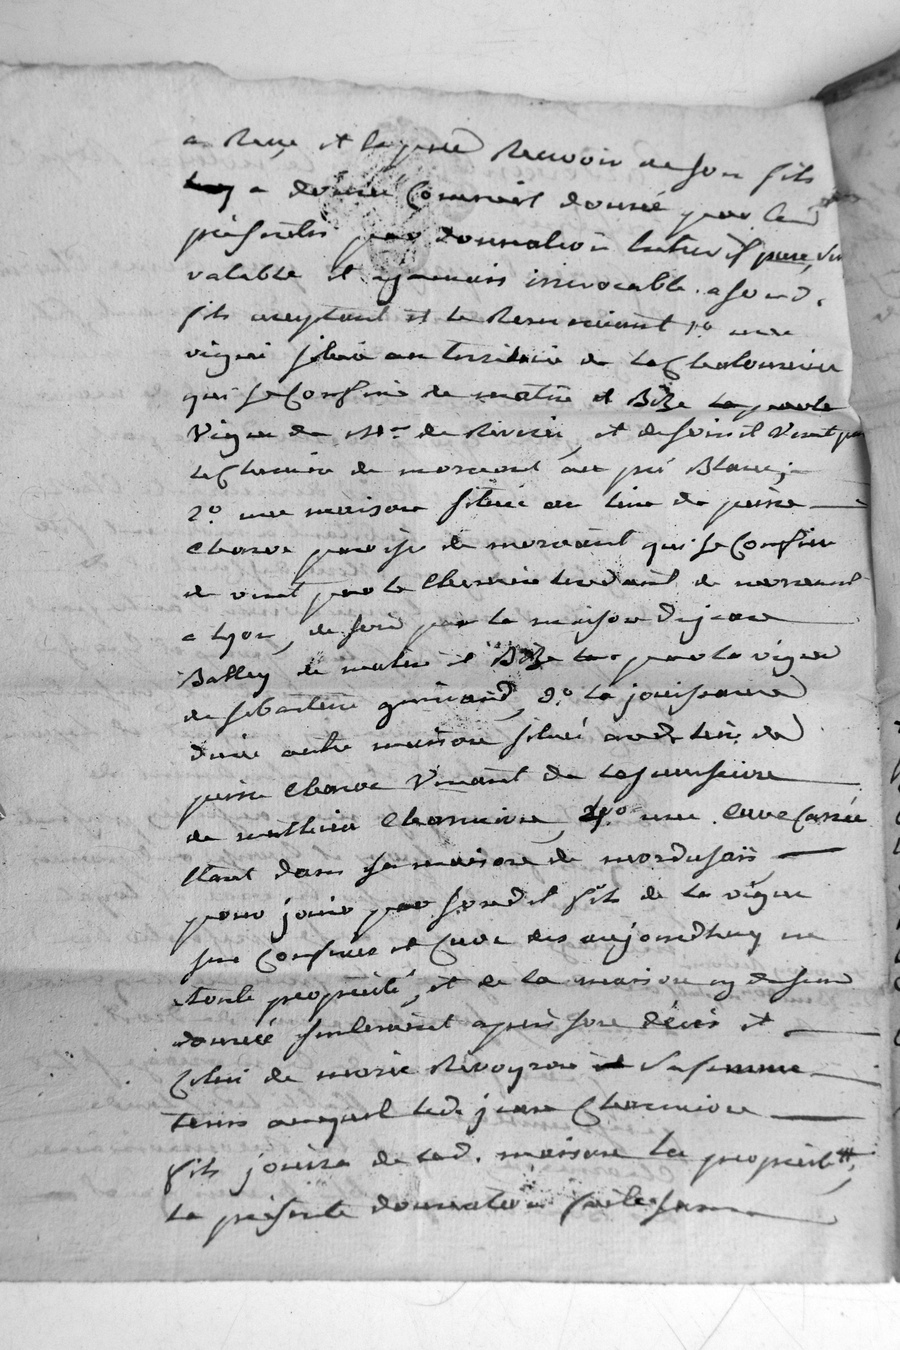 a Reçu et Recevoir de son fils
a donné Comme il donne par les
présentes par donnation entre vif pure,
valable et a jamais irrevocable a sond.
fils acceptant et le Remerciant 1º une
vigne située au territoire de la
qui se Confine de matin et Bize
Vigne de Mr. de Riverie, et de soir et Vent par
le Chemin de mornant au pré Blanc;
2º une maison située au lieu de pierre
Chave paroisse de mornant qui se Confine
de vent par le Chemin tendant de mornant
a Lyon, de soir par la maison de jean
Balley de matin et Bize par la vigne
de sébastien 3º la jouissance
d'une autre maison située aud. lieu de
pierre Chave Venant de
de mathieu Charmion, 4º une Cuve Carrée
étant dans sa maison de
pour jouir par sond. fils de la vigne
sus Confinée et Cuve des aujourdhuy en
toute propriété, et de la maison cy dessus
donnée seulement après son décès et
Celui de marie Rivoyron sa femme
tems auquel led. jean Charmion
fils jouira de lad. maison la propriété,
la présente donnation faite